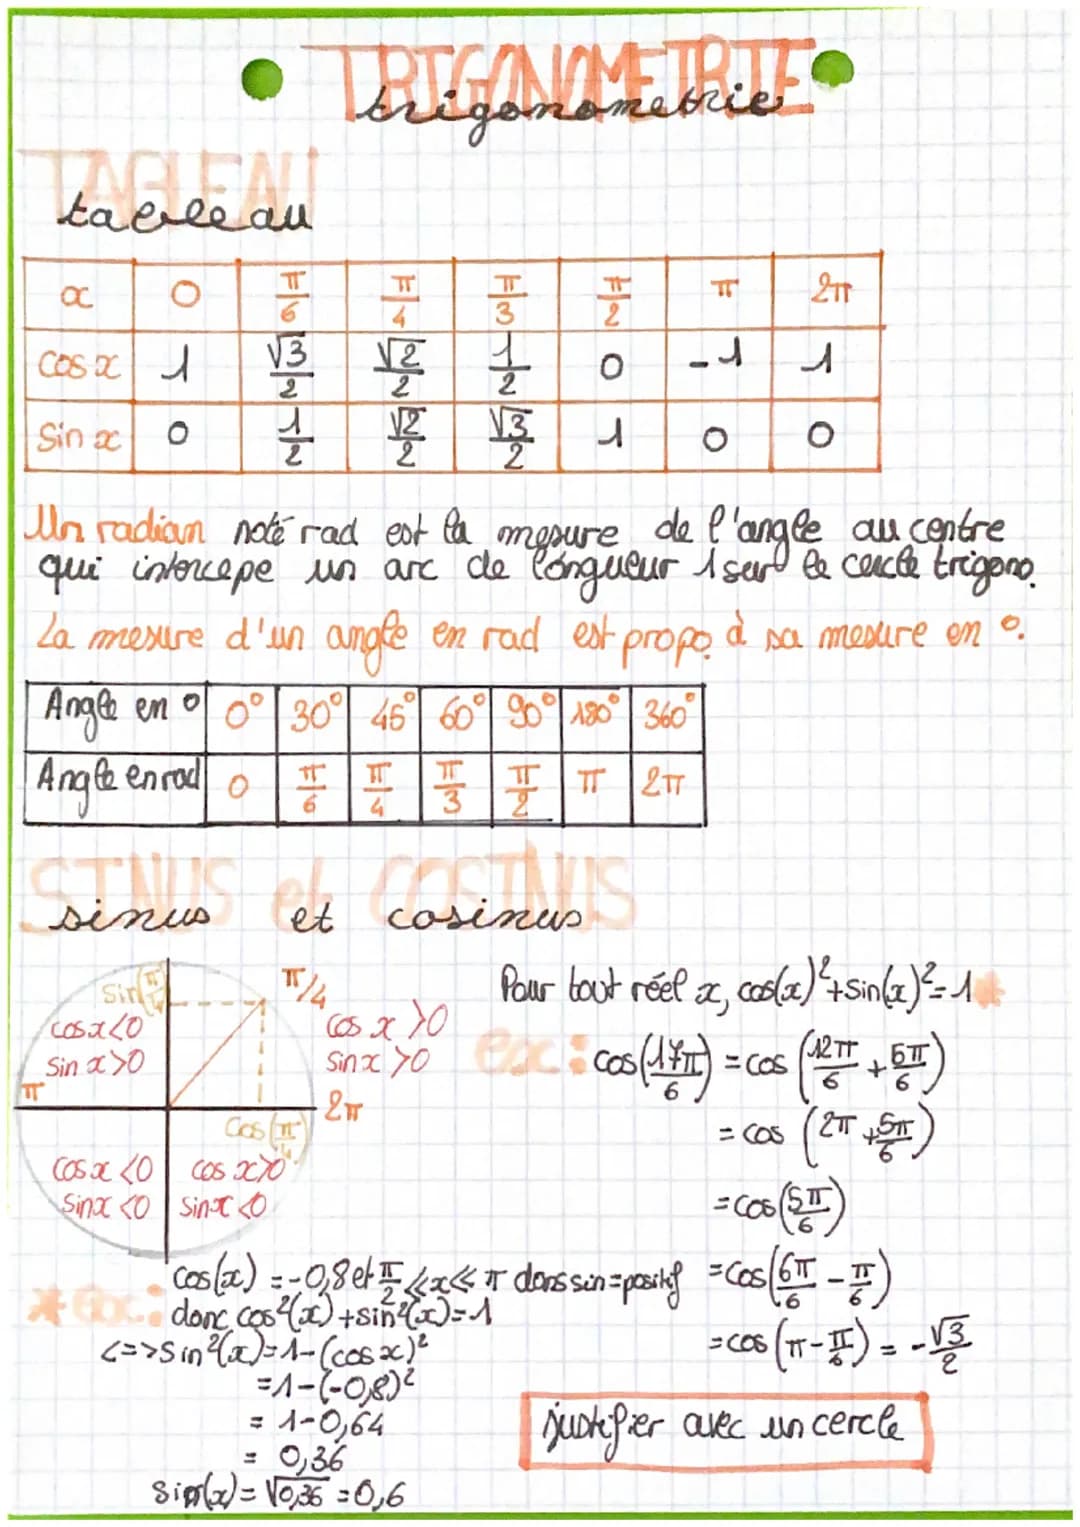 TRIGONOMETRIE
trigonometrie
TABLEAU
tableau
x 0 π/6 π/4 π/3 π/2 π 2π
cos x 1 √3/2 √2/2 1/2 0 -1 1
Sin x 0 1/2 √2/2 √3/2 1 0 0
Un radian noté rad est la mesure de l'angle au centre
qui intercepe un arc de longueur 1 sur le cercle trigono.
La mesure d'un angle en rad est propo à sa mesure en °.
Angle en ° 0° 30° 45° 60° 90° 180° 360°
Angle en rad 0 π/6 π/4 π/3 π/2 π 2π
SINUS et COSINUS
sinus et cosinus
Sin(π/4)
π/4
cos x<0
sin x>0
cos x >0
sin x >0
π
2π
Cos(π/4)
cos x <0
sin x <0
cos x>0
sin x <0
Pour tout réel x, cos(x)²+sin(x)²=1 *
ex: cos(17π/6) = cos(12π/6 + 5π/6)
= cos (2π + 5π/6)
= cos(5π/6)
= cos(6π/6 - π/6)
= cos(π - π/6) = -√3/2
justifier avec un cercle
* Ex: cos(x) = -0,8 et π/2 ≤x≤ π dons sin = positif
donc cos²(x) + sin²(x) = 1
<=> Sin²(x) = 1-(cos x)²
= 1-(-0,8)²
= 1-0,64
= 0,36
Sin(x) = √0,36 = 0,6